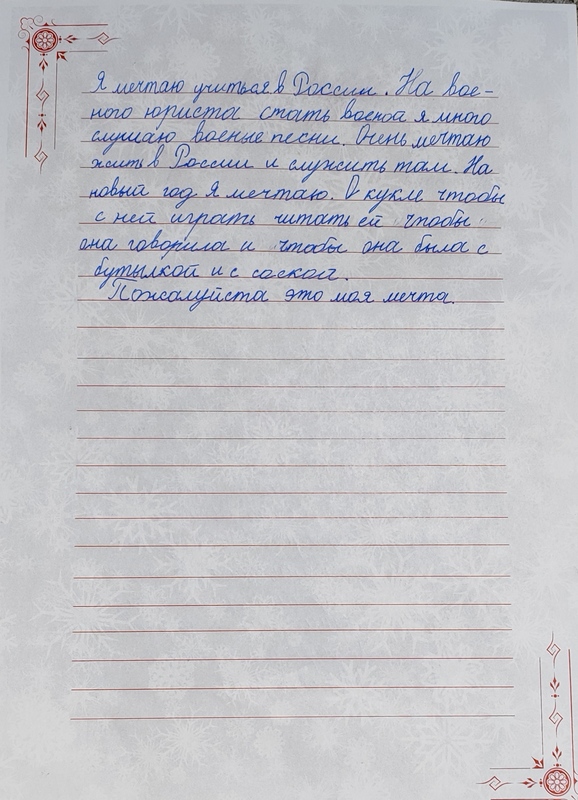 Я мечтаю учиться в России. На вое-
ного юриста стать военой я много
слушаю военые песни. Очень мечтаю
жить в России и служить там. На
новый год я мечтаю. О кукле чтобы
с ней играть читать ей чтобы
она говорила и чтобы она была с
бутылкой и с соской.
Пожалуйста это моя мечта.